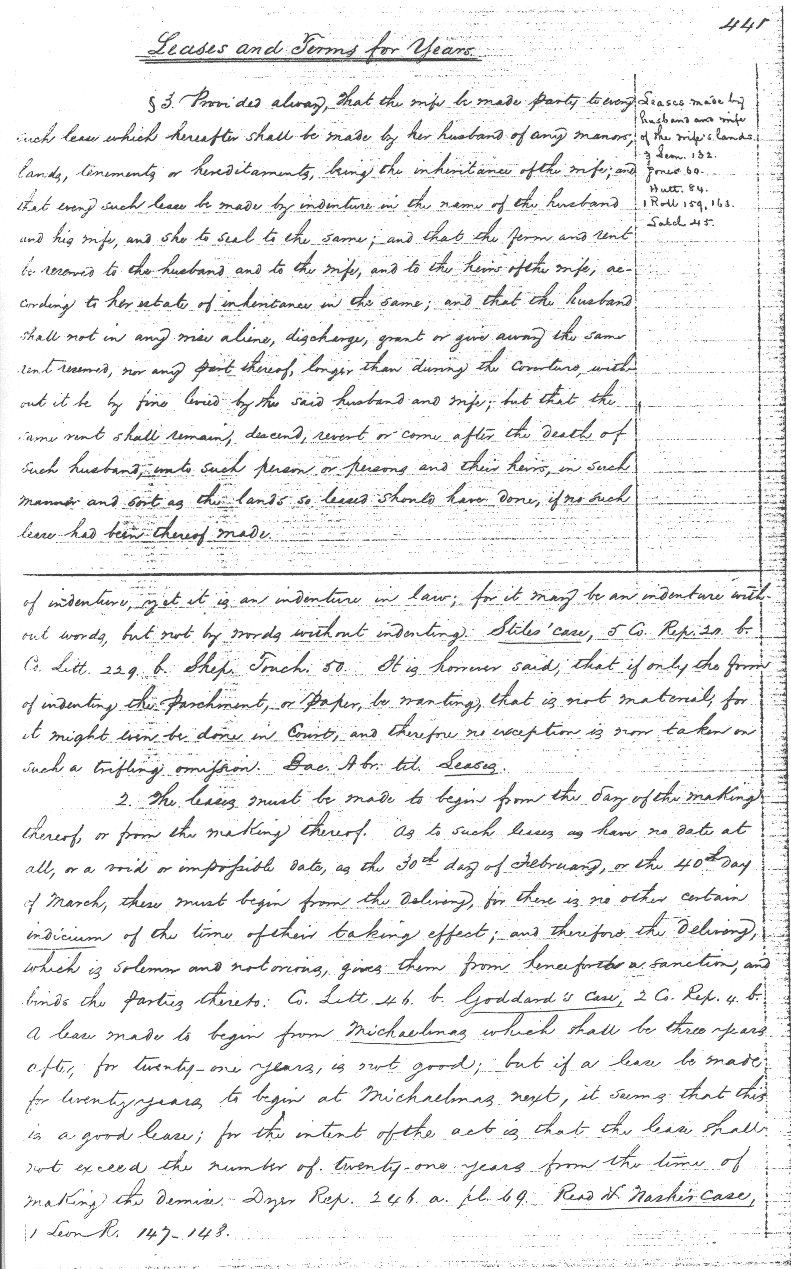 441
Leases and Terms for Years.
§ 3. Provided alway, that the wife be made party to every
such lease which hereafter shall be made by her husband of any manors,
lands, tenements or hereditaments, being the inheritance of the wife; and
that every such lease be made by indenture in the name of the husband
and his wife, and she to seal to the same; and that the ferm and rent
be reserved to the husband and to the wife, and to the heirs of the wife, ac-
cording to her estate of inheritance in the same; and that the husband
shall not in any wise aliene, discharge, grant or give away the same
rent reserved, nor any part thereof, longer than during the coverture, with-
out it be by fine levied by the said husband and wife; but that the
same rent shall remain, descend, revert or come after the death of
such husband, unto such person or persons and their heirs, in such
manner and sort as the lands so leased should have done, if no such
lease had been thereof made.
Leases made by
husband and wife
of the wife's lands.
3 Leon. 132.
Jones 60.
Hutt. 84.
1 Roll 159, 163.
Latch 45.
of indenture, yet it is an indenture in law; for it may be an indenture with-
out words, but not by words without indenting. Stiles' case, 5 Co. Rep. 20. b.
Co. Litt. 229. b. Shep. Touch. 50. It is however said, that if only the form
of indenting the Parchment, or Paper, be wanting, that is not material, for
it might even be done in Court, and therefore no exception is now taken on
such a trifling omission. Bac. Abr. tit. Leases.
2. The leases must be made to begin from the day of the making
thereof, or from the making thereof. As to such leases as have no date at
all, or a void or impossible date, as the 30th day of February, or the 40th day
of March, these must begin from the delivery, for there is no other certain
indicium of the time of their taking effect; and therefore the delivery,
which is solemn and notorious, gives them from henceforth a sanction, and
binds the parties thereto. Co. Litt. 46. b. Goddard's case, 2 Co. Rep. 4. b.
A lease made to begin from Michaelmas which shall be three years
after, for twenty-one years, is not good; but if a lease be made
for twenty years to begin at Michaelmas next, it seems that this
is a good lease; for the intent of the act is that the lease shall
not exceed the number of twenty-one years from the time of
making the demise. Dyer Rep. 246. a. pl. 69. Read & Nashir case,
1 Leon R. 147-148.